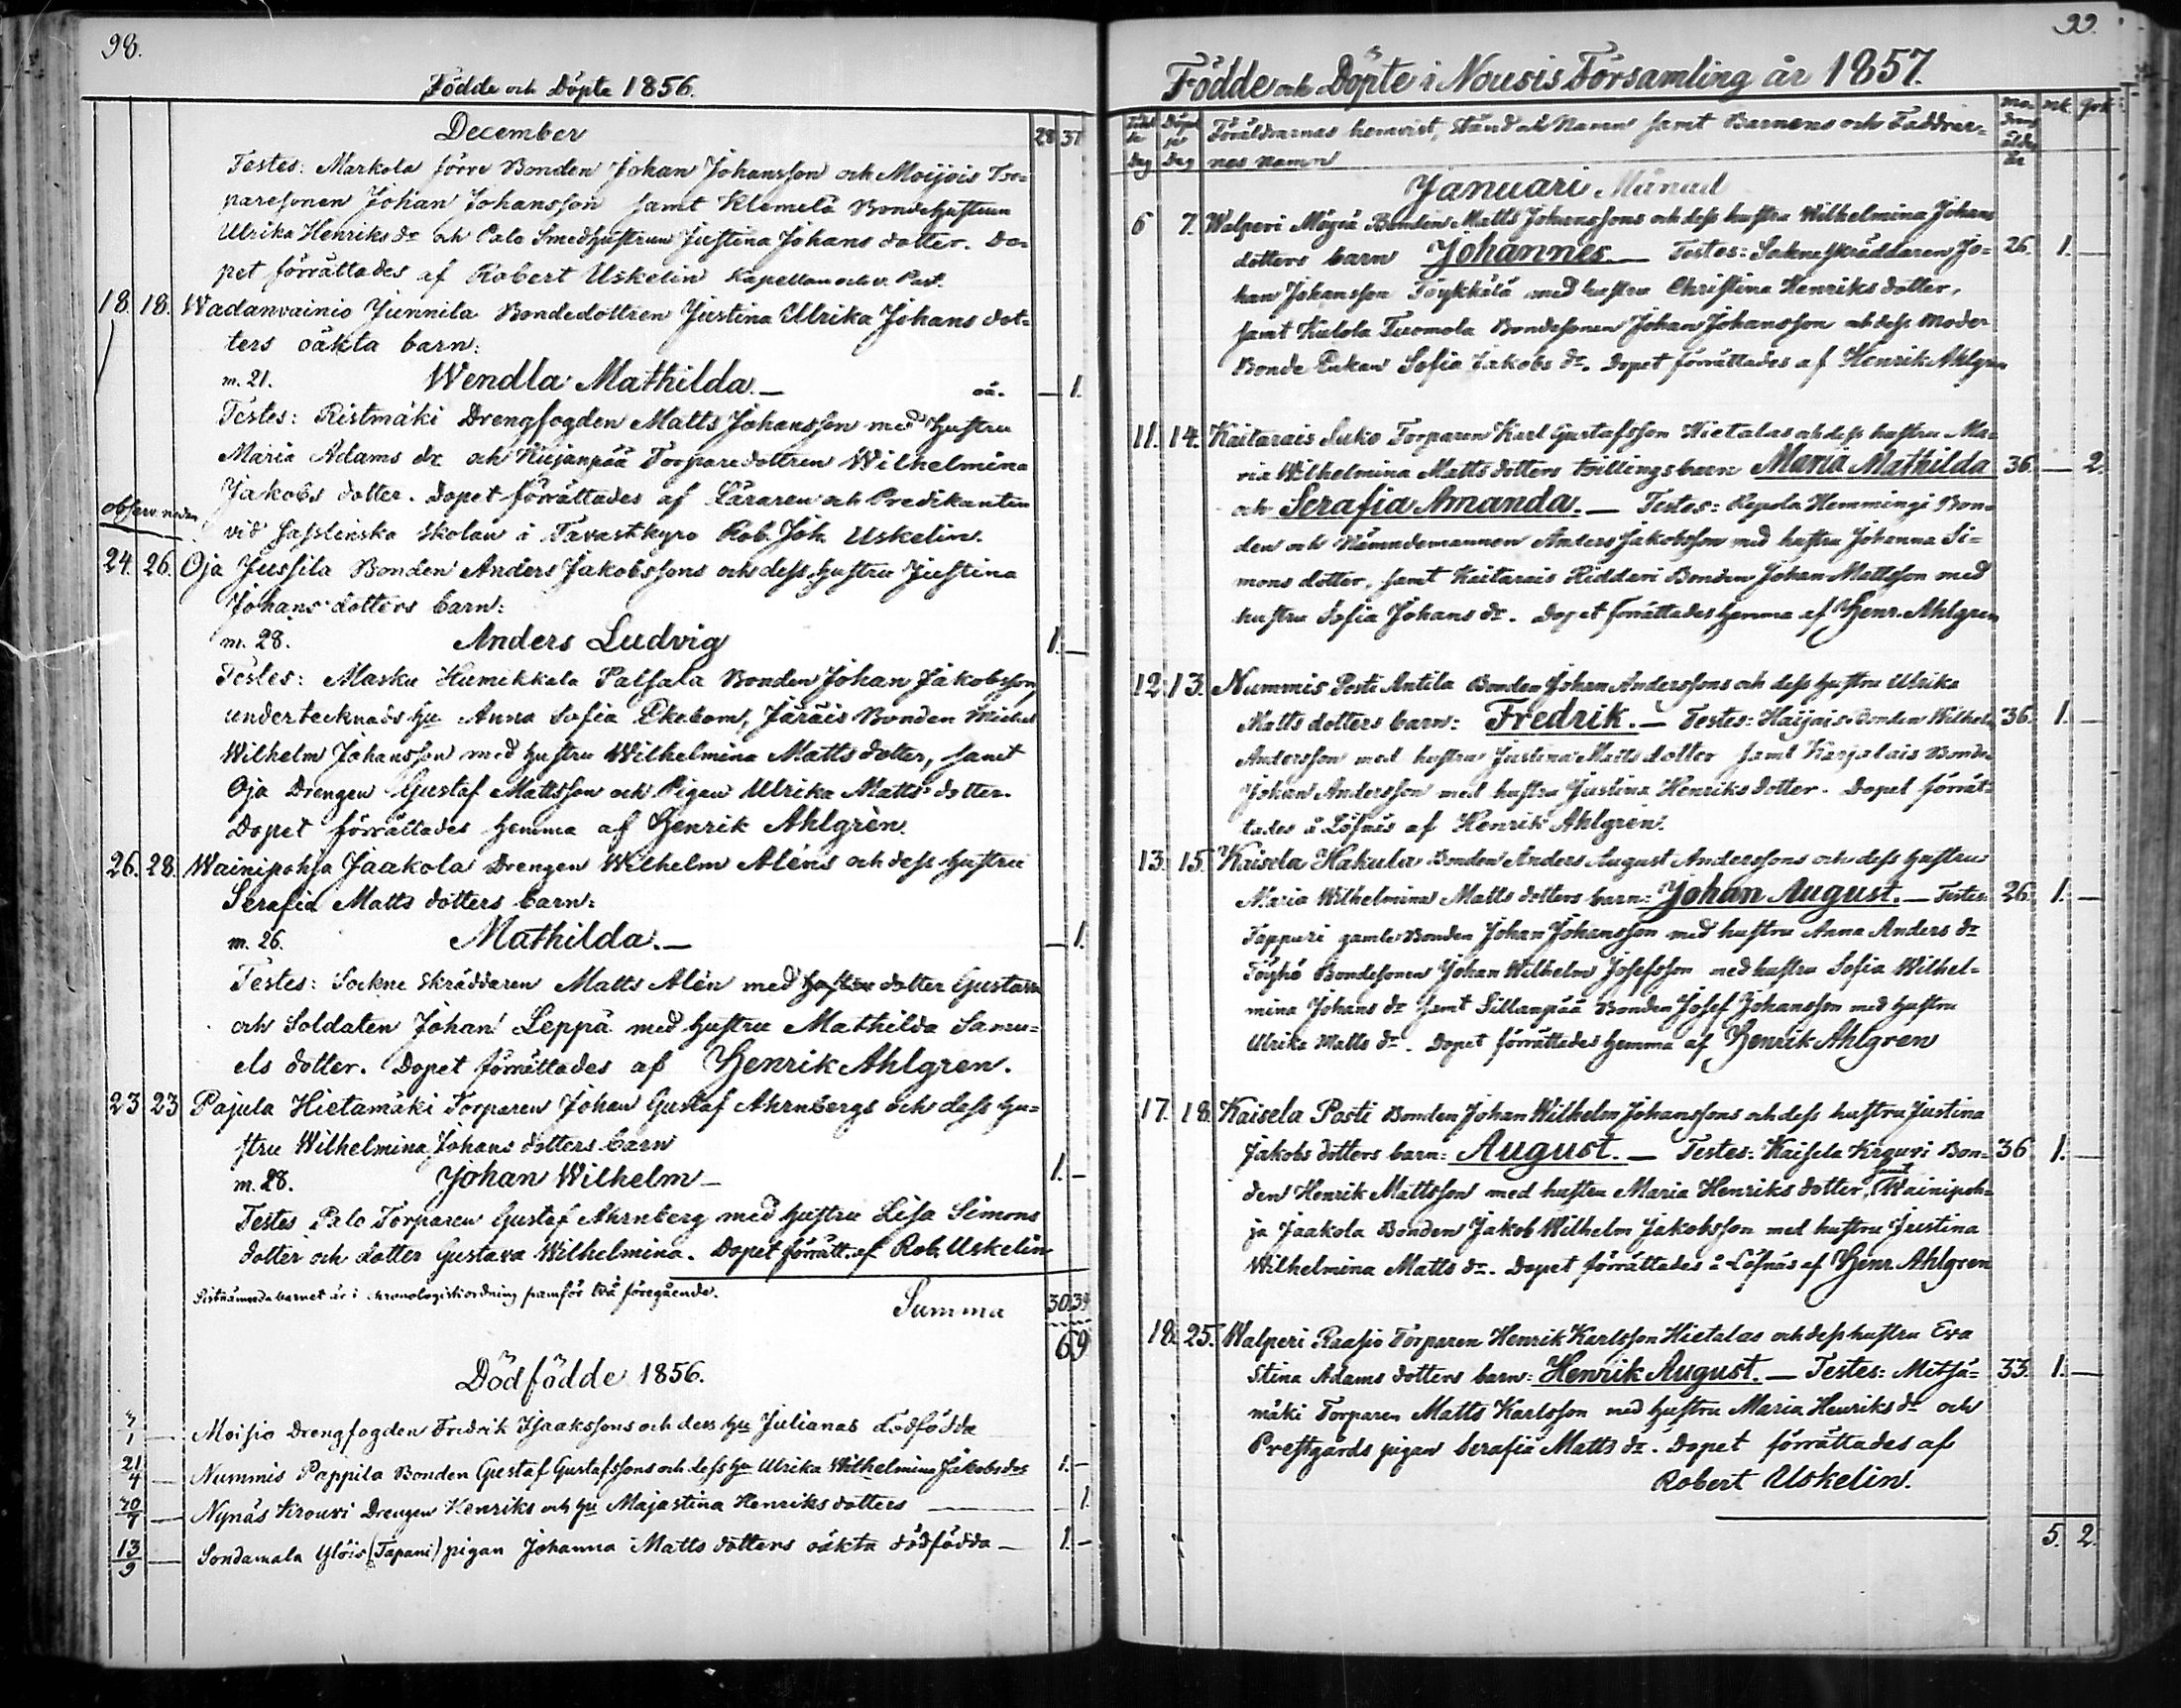 98.
Födde och Döpte 1856.
December
28 37
Testes: Markola förre Bonden Johan Johansson och Moijois Tor=
paresonen Johan Johansson samt Klemelä Bondehustrun
Ulrika Henriks dr och Palo Smedhustrun Justina Johans dotter. Do=
pet förrättades af Robert Uskelin Kapellan och v. Past.
18. 18. Wadanvainio Junnila Bondedottren Justina Ulrika Johans dot=
ters oäkta barn:
m. 21. Wendla Mathilda.— oä. — 1.
Testes: Ristmäki Drengfogden Matts Johansson med hustru
Maria Adams dr och Kiijanpää Torparedottren Wilhelmina
Jakobs dotter. Dopet förrättades af Läraren och Predikanten
observ. nedan
vid Hasslinska skolan i Tavastkyro Rob. Joh. Uskelin.
24. 26. Oja Jussila Bonden Anders Jakobssons och dess hustru Justina
Johans dotters barn:
m. 28. Anders Ludvig 1. —
Testes: Masku Humikkala Palsala Bonden Johan Jakobsson,
undertecknads hu Anna Sofia Ekebom, Järäis Bonden Michel
Wilhelm Johansson med hustru Wilhelmina Matts dotter, samt
Oja Drengen Gustaf Mattsson och Pigan Ulrika Matts dotter.
Dopet förrättades hemma af Henrik Ahlgrèn.
26. 28. Wainipohja Jaakola Drengen Wilhelm Aléns och dess hustru
Serafia Matts dotters barn:
m. 26. Mathilda.— — 1.
Testes: Sockne skräddaren Matts Alén med hustru dotter Gustava
och Soldaten Johan Leppä med hustru Mathilda Samu=
els dotter. Dopet förrättades af Henrik Ahlgren.
23 23 Pajula Hietamäki Torparen Johan Gustaf Ahrnbergs och dess hu=
stru Wilhelmina Johans dotters barn
m. 28. Johan Wilhelm — 1. —
Testes Palo Torparen Gustaf Ahrnberg med hustru Lisa Simons
dotter och dotter Gustava Wilhelmina. Dopet förrätt. af Rob. Uskelin
Sistnämnda barnet är i chronologisk ordning framför två föregående.
Summa 30. 39
69
Dödfödde 1856.
3/1 — Moisio Drengfogden Fredrik Isaakssons och dess hu Julianas dödfödda
21/4 — Nummis Pappila Bonden Gustaf Gustafssons och dess hu Ulrika Wilhelmina Jakobs drs 1. —
30/7 — Nynäs Krouvi Drengen Henriks och hu Majastina Henriks dotters — 1.
13/9 — Sondamala Ylöis (Tapani) pigan Johanna Matts dotters oäkta dödfödda — 1. —
99.
Födde och Döpte i Nousis Församling år 1857.
Födel se dag Döpel se dag Föräldrarnas hemvist, stånd och Namn samt Barnens och Faddrar=
nas namn
mk. qvk.
Januari Månad
6 7. Walperi Möyiä Bonden Matts Johanssons och dess hustru Wilhelmina Johans
dotters barn Johannes.— Testes: Sockneskräddaren Jo= 26. 1. —
han Johansson Töykkälä med hustru Christina Henriks dotter,
samt Kulola Tuomola Bondesonen Johan Johansson och dess Moder
Bonde Enkan Sofia Jakobs dr. Dopet förrättades af Henrik Ahlgren
11. 14. Kaitarais Suko Torparen Karl Gustafsson Hietalas och dess hustru Ma=
ria Wilhelmina Matts dotters tvillingsbarn Maria Mathilda 36. — 2.
och Serafia Amanda.— Testes: Repola Hemmingi Bon=
den och Nämndemannen Anders Jakobsson med hustru Johanna Si=
mons dotter, samt Kaitarais Hidderi Bonden Johan Mattsson med
hustru Sofia Johans dr. Dopet förrättades hemma af Henr. Ahlgren
12. 13. Nummis Posti Antila Bonden Johan Anderssons och dess hustru Ulrika
Matts dotters barn: Fredrik.— Testes: Haijais Bonden Wilhelm 36. 1. —
Andersson med hustru Justina Matts dotter samt Karjalais Bonden
Johan Andersson med hustru Justina Henriks dotter. Dopet förrät=
tades å Löfnäs af Henrik Ahlgren.
13. 15. Kaisela Hakula Bonden Anders August Anderssons och dess hustru
Maria Wilhelmina Matts dotters barn: Johan August.— Testes: 26. 1. —
Tappuri gamle Bonden Johan Johansson med hustru Anna Anders dr
Töyhö Bondesonen Johan Wilhelm Josefsson med hustru Sofia Wilhel=
mina Johans dr samt Sillanpää Bonden Josef Johansson med hustru
Ulrika Matts dr. Dopet förrättades hemma af Henrik Ahlgren
17. 18. Kaisela Posti Bonden Johan Wilhelm Johanssons och dess hustru Justina
Jakobs dotters barn: August.— Testes: Kaisela Krouvi Bon= 36 1. —
den Henrik Mattsson med hustru Maria Henriks dotter, samt Wainipoh=
ja Jaakola Bonden Jakob Wilhelm Jakobsson med hustru Justina
Wilhelmina Matts dr. Dopet förrättades å Löfnäs af Henr. Ahlgren
18. 25. Walperi Raasio Torparen Henrik Karlsson Hietalas och dess hustru Eva
Stina Adams dotters barn: Henrik August.— Testes: Metsä= 33. 1. —
mäki Torparen Matts Karlsson med hustru Maria Henriks dr och
Prestgårds pigan Serafia Matts dr. Dopet förrättades af
Robert Uskelin.
5. 2.